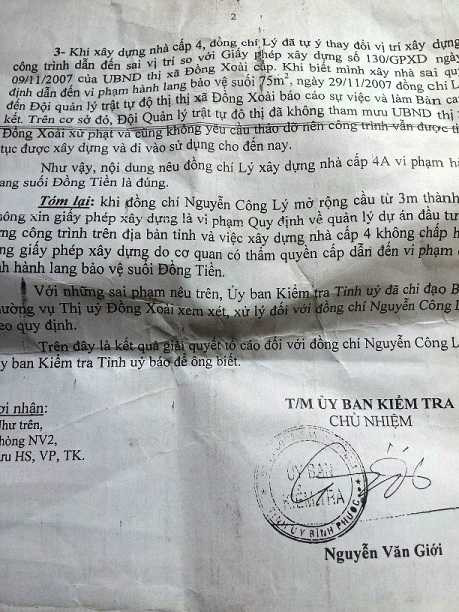 2
3- Khi xây dựng nhà cấp 4, đồng chí Lý đã tự ý thay đổi vị trí xây dựng
công trình dẫn đến sai vị trí so với Giấy phép xây dựng số 130/GPXD ngày
09/11/2007 của UBND thị xã Đồng Xoài cấp. Khi biết mình xây nhà sai quy
định dẫn đến vi phạm hành lang bảo vệ suối 75m², ngày 29/11/2007 đồng chí L
đến Đội quản lý trật tự đô thị thị xã Đồng Xoài báo cáo sự việc và làm Bản ca
kết. Trên cơ sở đó, Đội Quản lý trật tự đô thị đã không tham mưu UBND thị
Đồng Xoài xử phạt và cũng không yêu cầu tháo dỡ nên công trình vẫn được ti
tục được xây dựng và đi vào sử dụng cho đến nay.
Như vậy, nội dung nêu đồng chí Lý xây dựng nhà cấp 4A vi phạm h
ang suối Đồng Tiền là đúng.
Tóm lại: khi đồng chí Nguyễn Công Lý mở rộng cầu từ 3m thành
hông xin giấy phép xây dựng là vi phạm Quy định về quản lý dự án đầu tư
ng công trình trên địa bàn tỉnh và việc xây dựng nhà cấp 4 không chấp h
ng giấy phép xây dựng do cơ quan có thẩm quyền cấp dẫn đến vi phạm
nh hành lang bảo vệ suối Đồng Tiền.
Với những sai phạm nêu trên, Ủy ban Kiểm tra Tỉnh uỷ đã chỉ đạo B
hường vụ Thị uỷ Đồng Xoài xem xét, xử lý đối với đồng chí Nguyễn Công L
eo quy định.
Trên đây là kết quả giải quyết tố cáo đối với đồng chí Nguyễn Công L
ỷ ban Kiểm tra Tỉnh uỷ báo để ông biết.
ơi nhận:
Như trên,
hòng NV2,
ưu HS, VP, TK.
T/M ỦY BAN KIỂM TRA
CHỦ NHIỆM
ỦY BAN
KIỂM TRA
TỈNH ỦY BÌNH PHƯỚC
Nguyễn Văn Giới